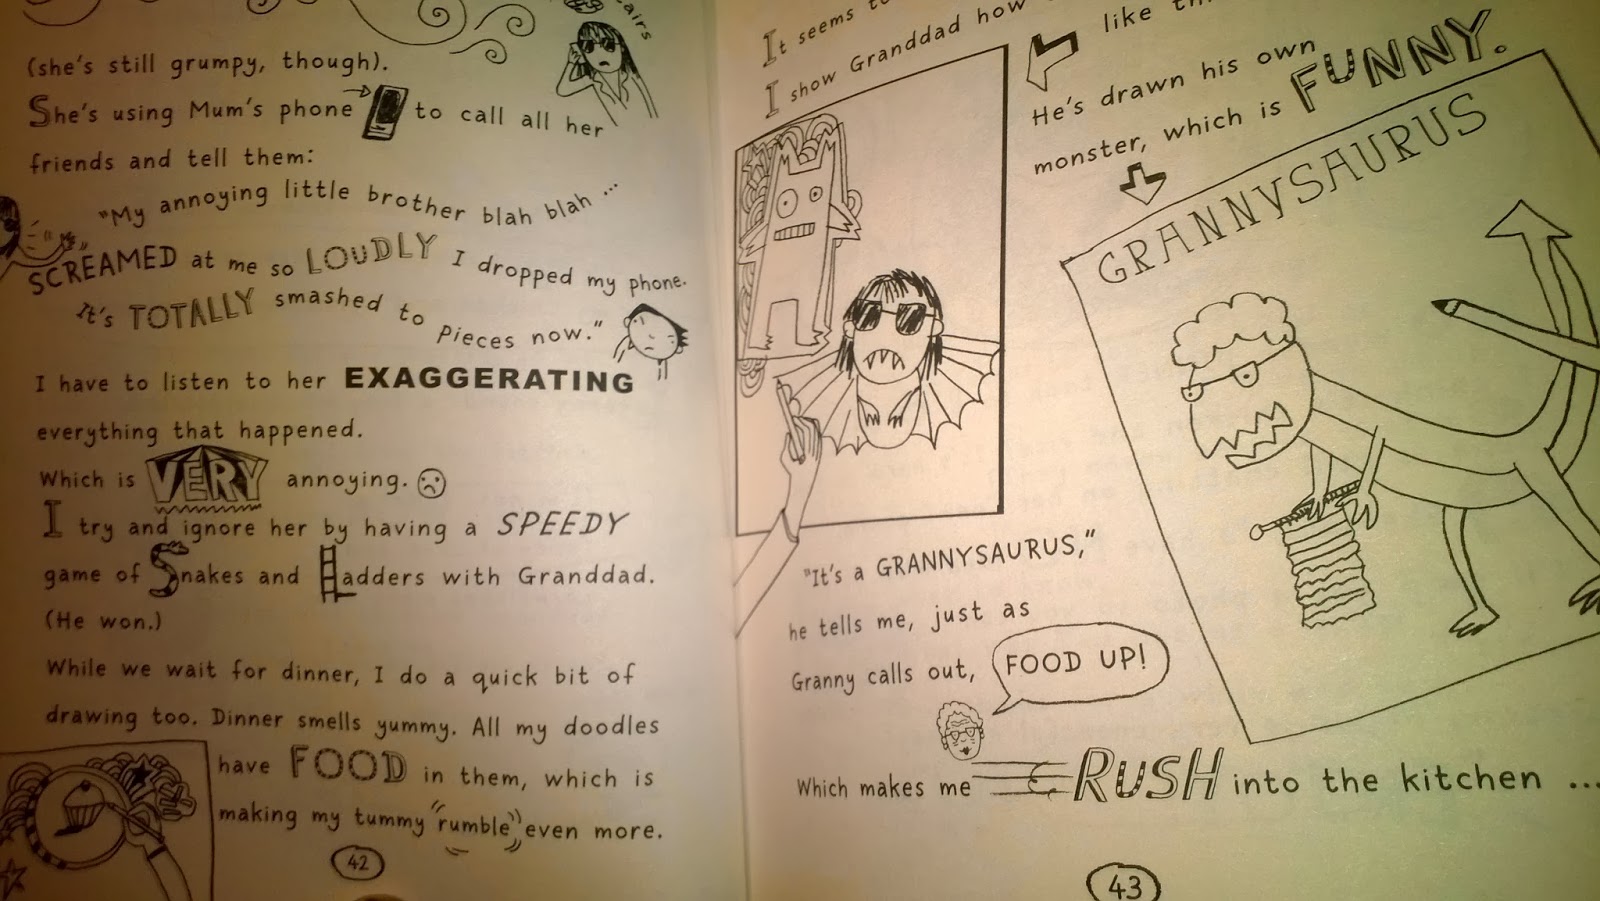 (she's still grumpy, though).
She's using Mum's phone to call all her
friends and tell them:
"My annoying little brother blah blah ...
SCREAMED at me so LOUDLY I dropped my phone.
It's TOTALLY smashed to pieces now."
I have to listen to her EXAGGERATING
everything that happened.
Which is VERY annoying.
I try and ignore her by having a SPEEDY
game of Snakes and Ladders with Granddad.
(He won.)
While we wait for dinner, I do a quick bit of
drawing too. Dinner smells yummy. All my doodles
have FOOD in them, which is
making my tummy "rumble" even more.
42
It seems
I show Granddad how
like
He's drawn his own
monster, which is FUNNY.
GRANNYSAURUS
"It's a GRANNYSAURUS,"
he tells me, just as
Granny calls out,
FOOD UP!
Which makes me RUSH into the kitchen ...
43